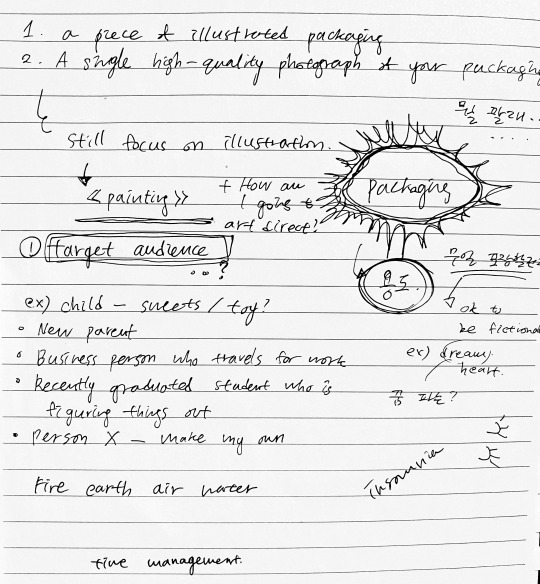 1. a piece of illustrated packaging
2. A single high-quality photograph of your packaging
뭘 팔래..
....
Still focus on illustration.
<<painting>>
+ How am
I going to
art direct?
packaging
① target audience
...?
용도.
무엇을 포장할
ok to
be fictional
ex) child - sweets / toy?
• New parent
• Business person who travels for work
• Recently graduated student who is
figuring things out
• Person X - make my own
ex) dream,
heart.
꿈 파는?
insomnia
Fire earth air water
time management.